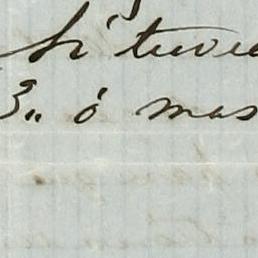 Si tuvie
3,, ó mas